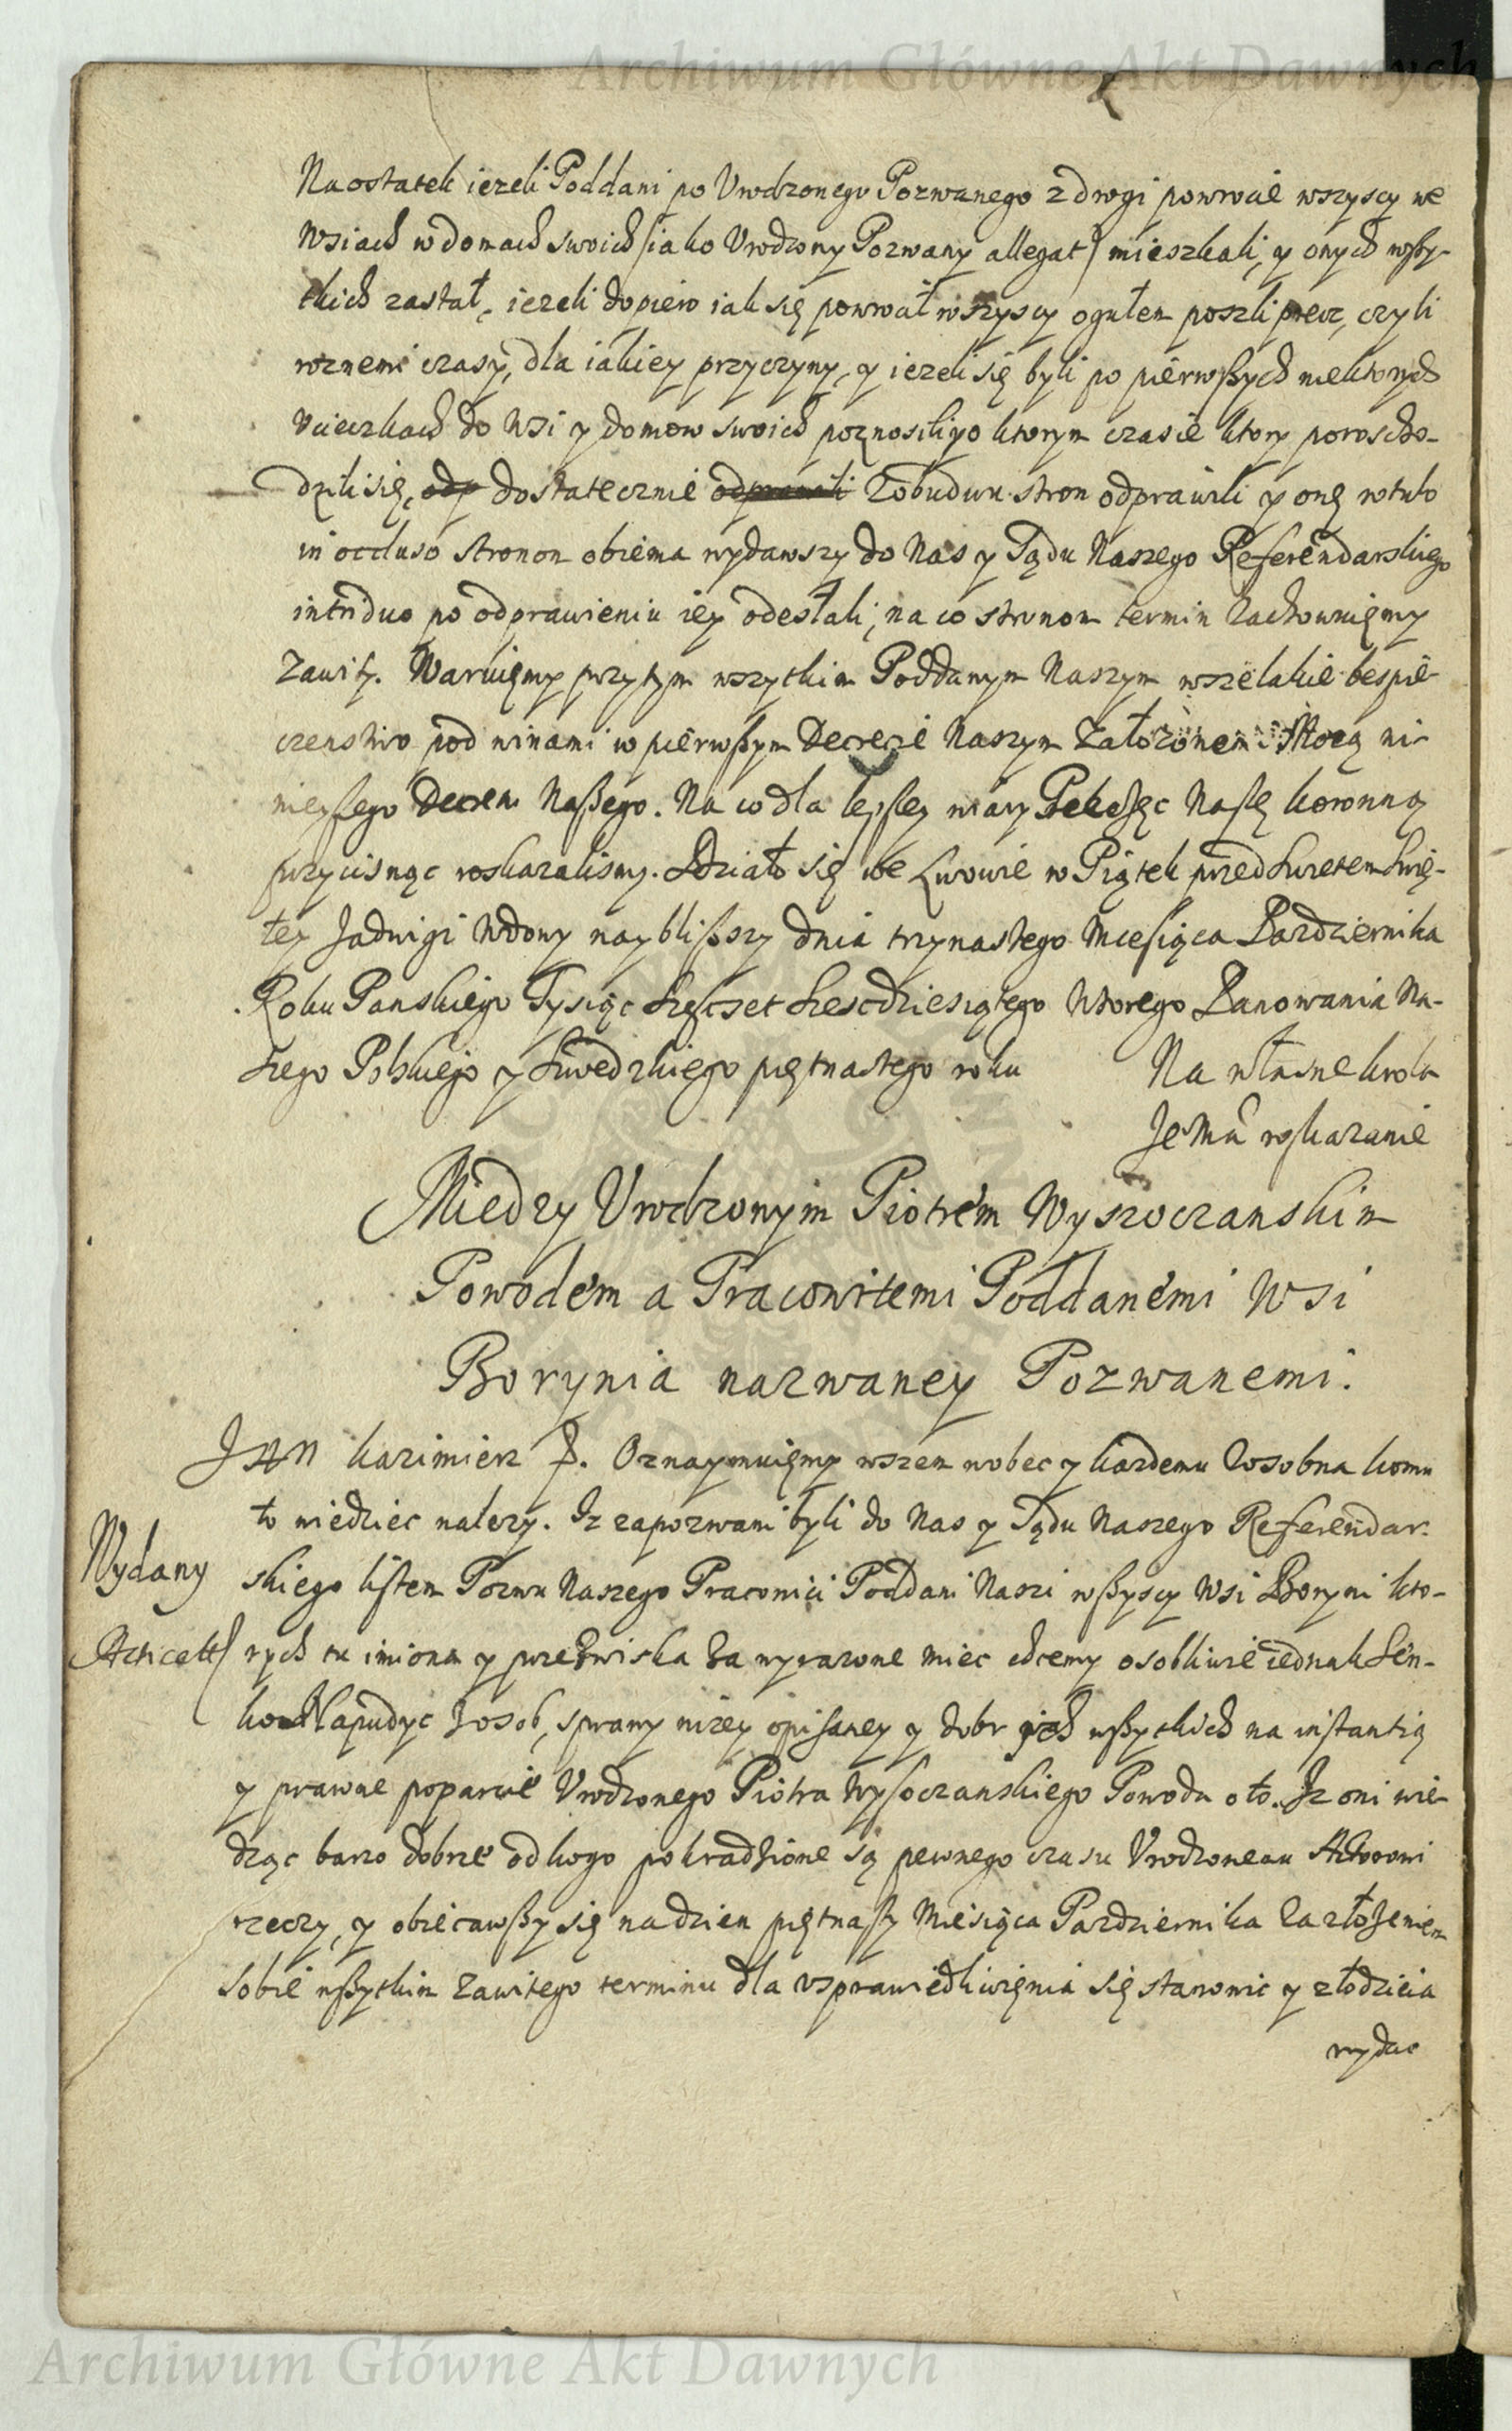 Archiwum Główne Akt Dawnych
Naostatek iezeli Poddani po Vrodzonego Pozwanego z drogi powrocie wszyscy we
Wsiach w domach swoich /iako Vrodzony Pozwany allegat/ mieszkali, y onych wßy-
tkich zastał, iezeli dopiero iak się powrocił wszyscy ogułem poszli precz, czyli
roznemi czasy, dla iakiey przyczyny, y iezeli się byli po pierwßych niektorych
vcieczkach do Wsi y domow swoich poznosili y o ktorym czasie ktory porozcho-
dzili się, odp dostatecznie odprawili Zobudwu stron odprawili y onę rotulo
in occluso stronom obiema wydawszy do Nas y Sądu Naszego Referendarskiego
intriduo po odprawieniu iey odesłali, na co stronom termin zachowuięmy
Zawity. Waruięmy przytym wszytkim Poddanym Naszym wszelakie bespie-
czenstwo pod winami w pierwßym Decrecie Naszym Założonemi Mocą ni-
nieyszego Decretu Naßego. Na co dla lepszey wiary Pieczęc Naszę koronną
przycisnąc roskazalismy. Działo się we Lwowie w Piątek przed Swietem Swię-
tey Jadwigi Wdowy naybliższy dnia trzynastego Miesiąca Pazdziernika
Roku Panskiego Tysiąc Szescset Szescdziesiątego Wtorego Panowania Na-
szego Polskiego y Szwedzkiego piętnastego roku Na własne krola
Je Mci roskazanie
Miedzy Vrodzonym Piotrem Wyszoczanskim
Powodem a Pracowitemi Poddanemi Wsi
Borynia nazwaney Pozwanemi.
JAN Kazimierz &. Oznaymuięmy wszem wobec y kazdemu Zosobna komu
to wiedziec nalezy. Iz zapozwani byli do Nas y Sądu Naszego Referendar-
Wydany
skiego listem Pozwu Naszego Pracowici Poddani Naszi wßyscy Wsi Boryni kto-
Acticatt
rych tu imiona y przezwiska Za wyrazone miec chcemy osobliwie iednak Sen-
ko Zosob, sprawy nizey opisaney y dobr ich wßytkich na instantią
y prawne poparcie Vrodzonego Piotra Wysoczanskiego Powoda o to. Iz oni wie-
dząc barzo dobrze od kogo pokradzione są pewnego czasu Vrodzonemu Aktorowi
rzeczy, y obiecawßy się na dzien piętnasty Miesiąca Pazdziernika Za złożeniem
sobie wßytkim Zawitego terminu dla vsprawiedliwięnia się stanowic y złodzieia
wydac
Archiwum Główne Akt Dawnych